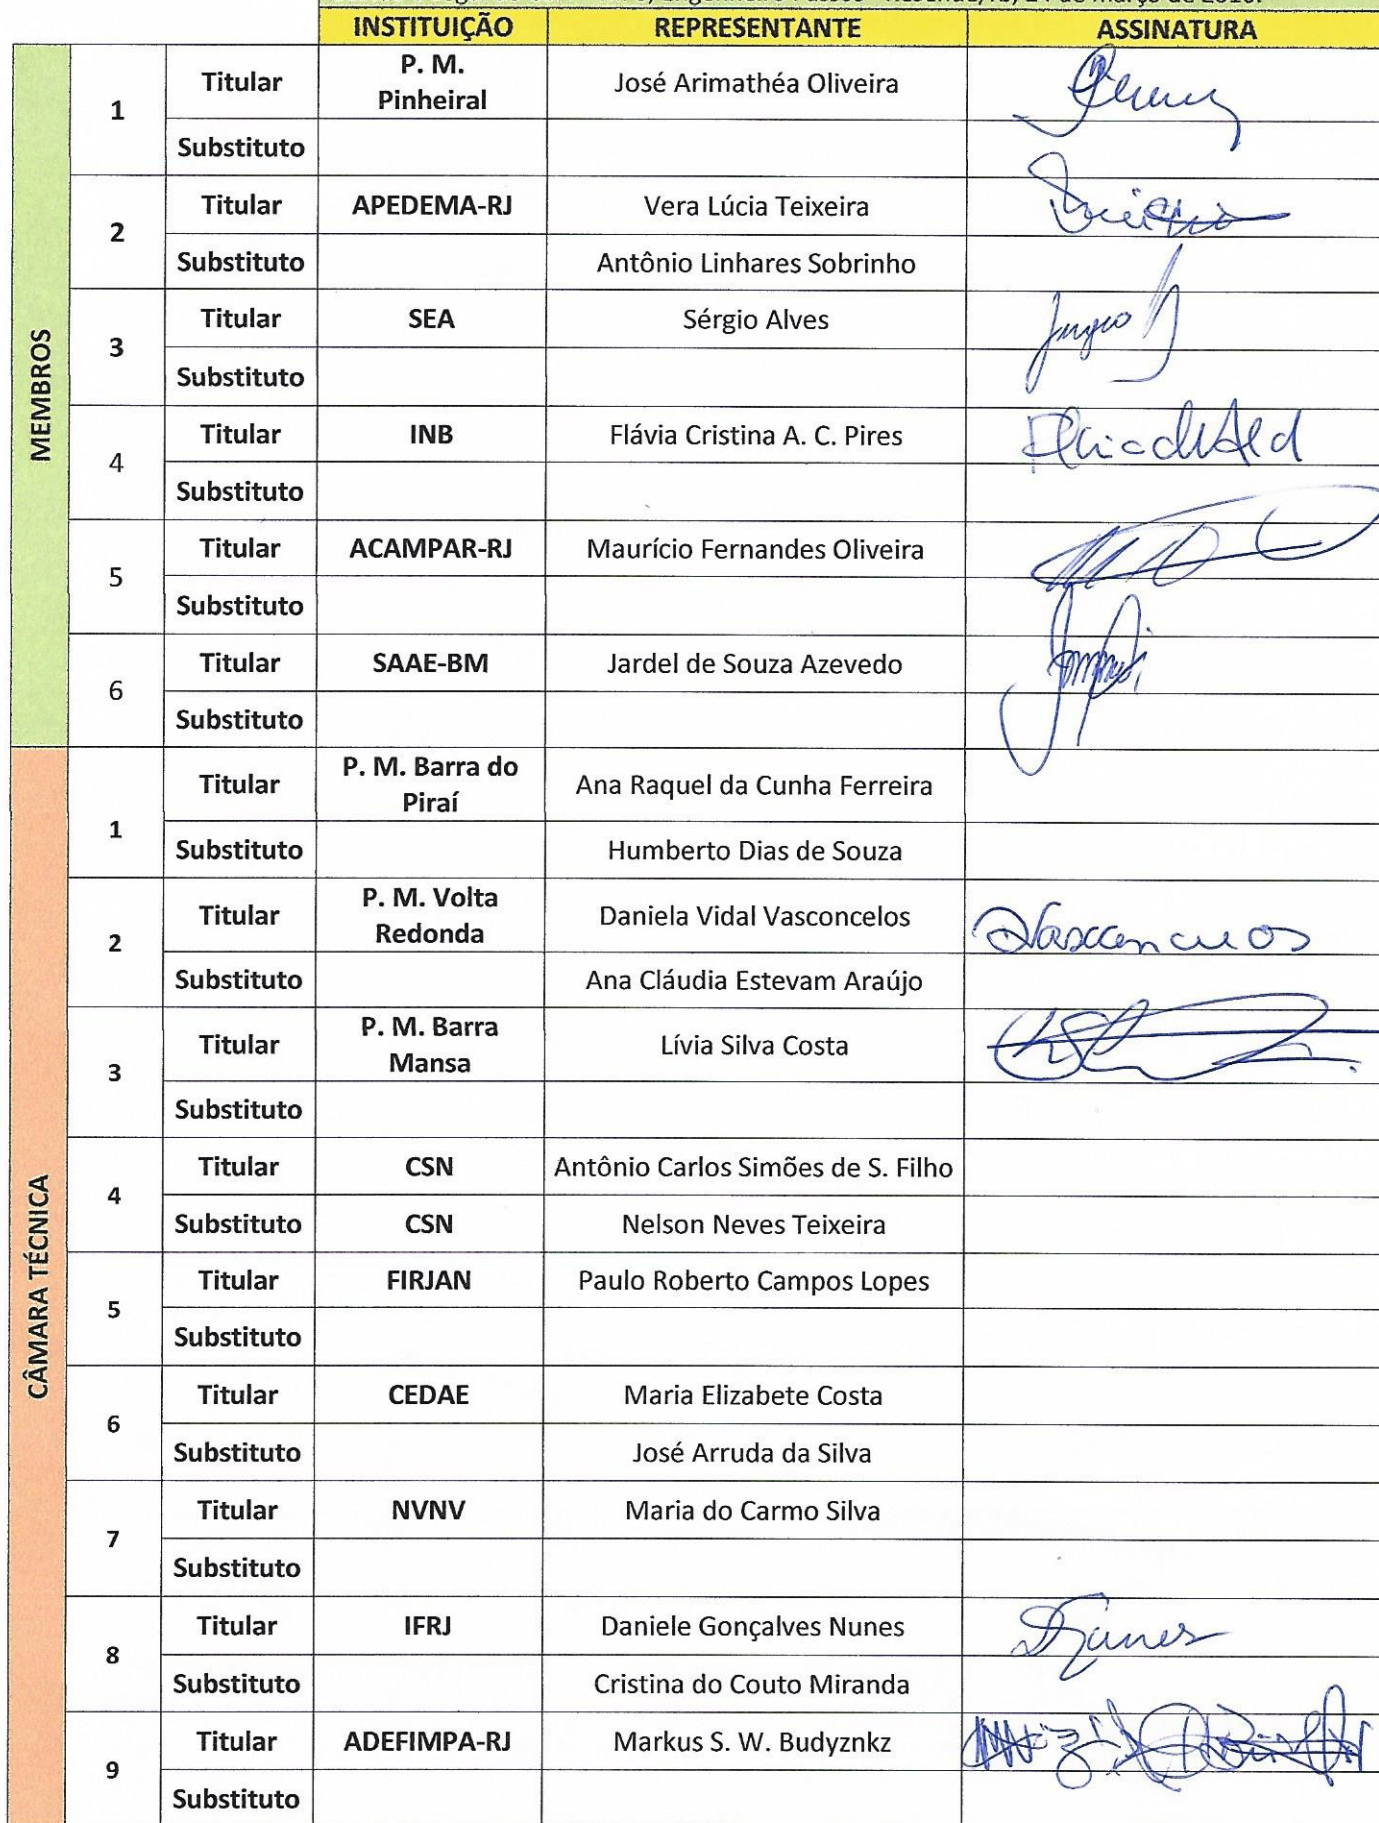 INSTITUIÇÃO REPRESENTANTE ASSINATURA
MEMBROS
1 Titular P. M. Pinheiral José Arimathéa Oliveira
Substituto
2 Titular APEDEMA-RJ Vera Lúcia Teixeira
Substituto Antônio Linhares Sobrinho
3 Titular SEA Sérgio Alves
Substituto
4 Titular INB Flávia Cristina A. C. Pires
Substituto
5 Titular ACAMPAR-RJ Maurício Fernandes Oliveira
Substituto
6 Titular SAAE-BM Jardel de Souza Azevedo
Substituto
CÂMARA TÉCNICA
1 Titular P. M. Barra do Piraí Ana Raquel da Cunha Ferreira
Substituto Humberto Dias de Souza
2 Titular P. M. Volta Redonda Daniela Vidal Vasconcelos
Substituto Ana Cláudia Estevam Araújo
3 Titular P. M. Barra Mansa Lívia Silva Costa
Substituto
4 Titular CSN Antônio Carlos Simões de S. Filho
Substituto CSN Nelson Neves Teixeira
5 Titular FIRJAN Paulo Roberto Campos Lopes
Substituto
6 Titular CEDAE Maria Elizabete Costa
Substituto José Arruda da Silva
7 Titular NVNV Maria do Carmo Silva
Substituto
8 Titular IFRJ Daniele Gonçalves Nunes
Substituto Cristina do Couto Miranda
9 Titular ADEFIMPA-RJ Markus S. W. Budyznkz
Substituto